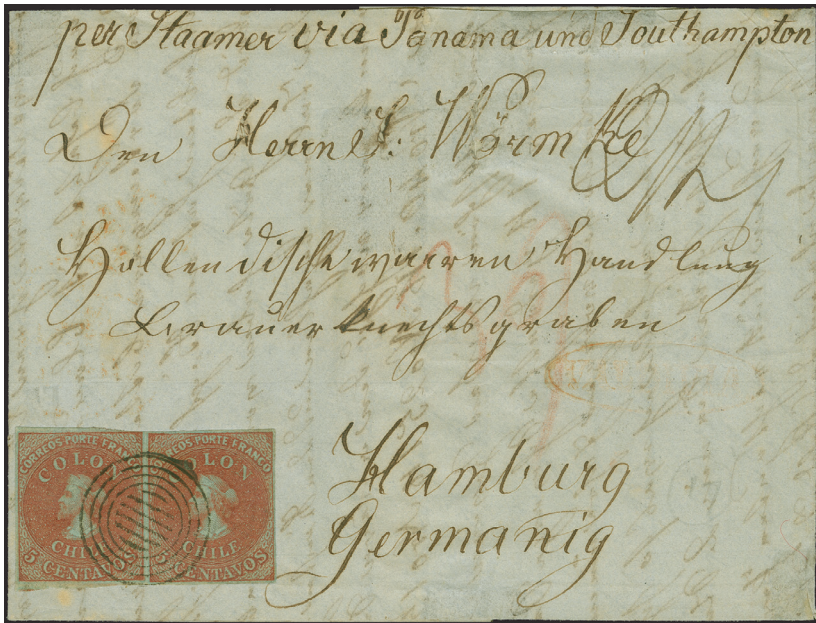 per Staamer via Panama und Southampton
Den Herrn S: Wörmke
Hollendische waaren Handlung
Brauerknechtsgraben
Hamburg
Germanig
CORREOS PORTE FRANCO
COLON
CHILE
5 CENTAVOS
CORREOS PORTE FRANCO
COLON
CHILE
5 CENTAVOS